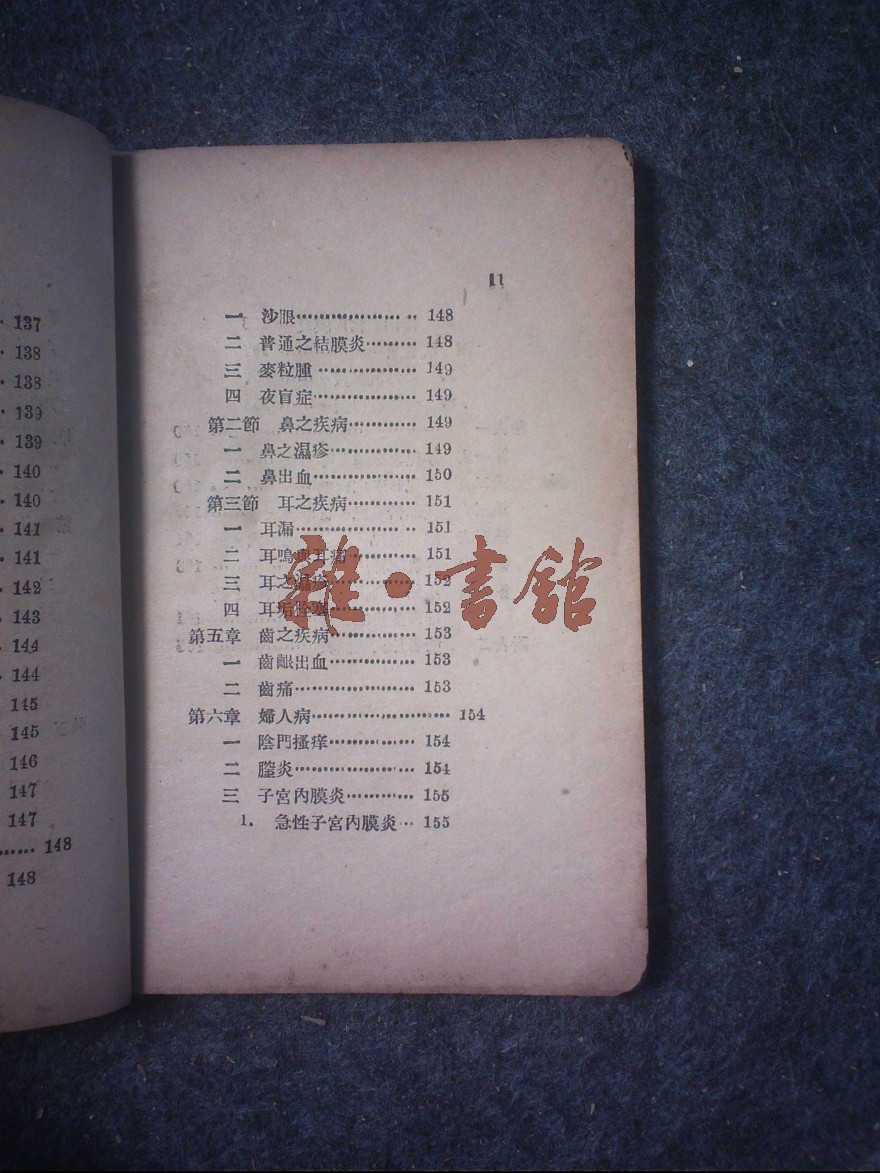 137
138
138
139
139
140
140
141
141
142
143
144
144
145
145
146
147
147
…… 148
148
11
一 沙眼……………… 148
二 普通之結膜炎……… 148
三 麥粒腫……………… 149
四 夜盲症……………… 149
第二節 鼻之疾病………… 149
一 鼻之濕疹…………… 149
二 鼻出血……………… 150
第三節 耳之疾病………… 151
一 耳漏………………… 151
二 耳鳴與耳痛………… 151
三 耳之濕疹…………… 152
四 耳垢栓塞…………… 152
第五章 齒之疾病…………… 153
一 齒齦出血…………… 153
二 齒痛………………… 153
第六章 婦人病…………………… 154
一 陰門搔痒…………… 154
二 膣炎………………… 154
三 子宮內膜炎………… 155
1. 急性子宮內膜炎… 155
雜·書館